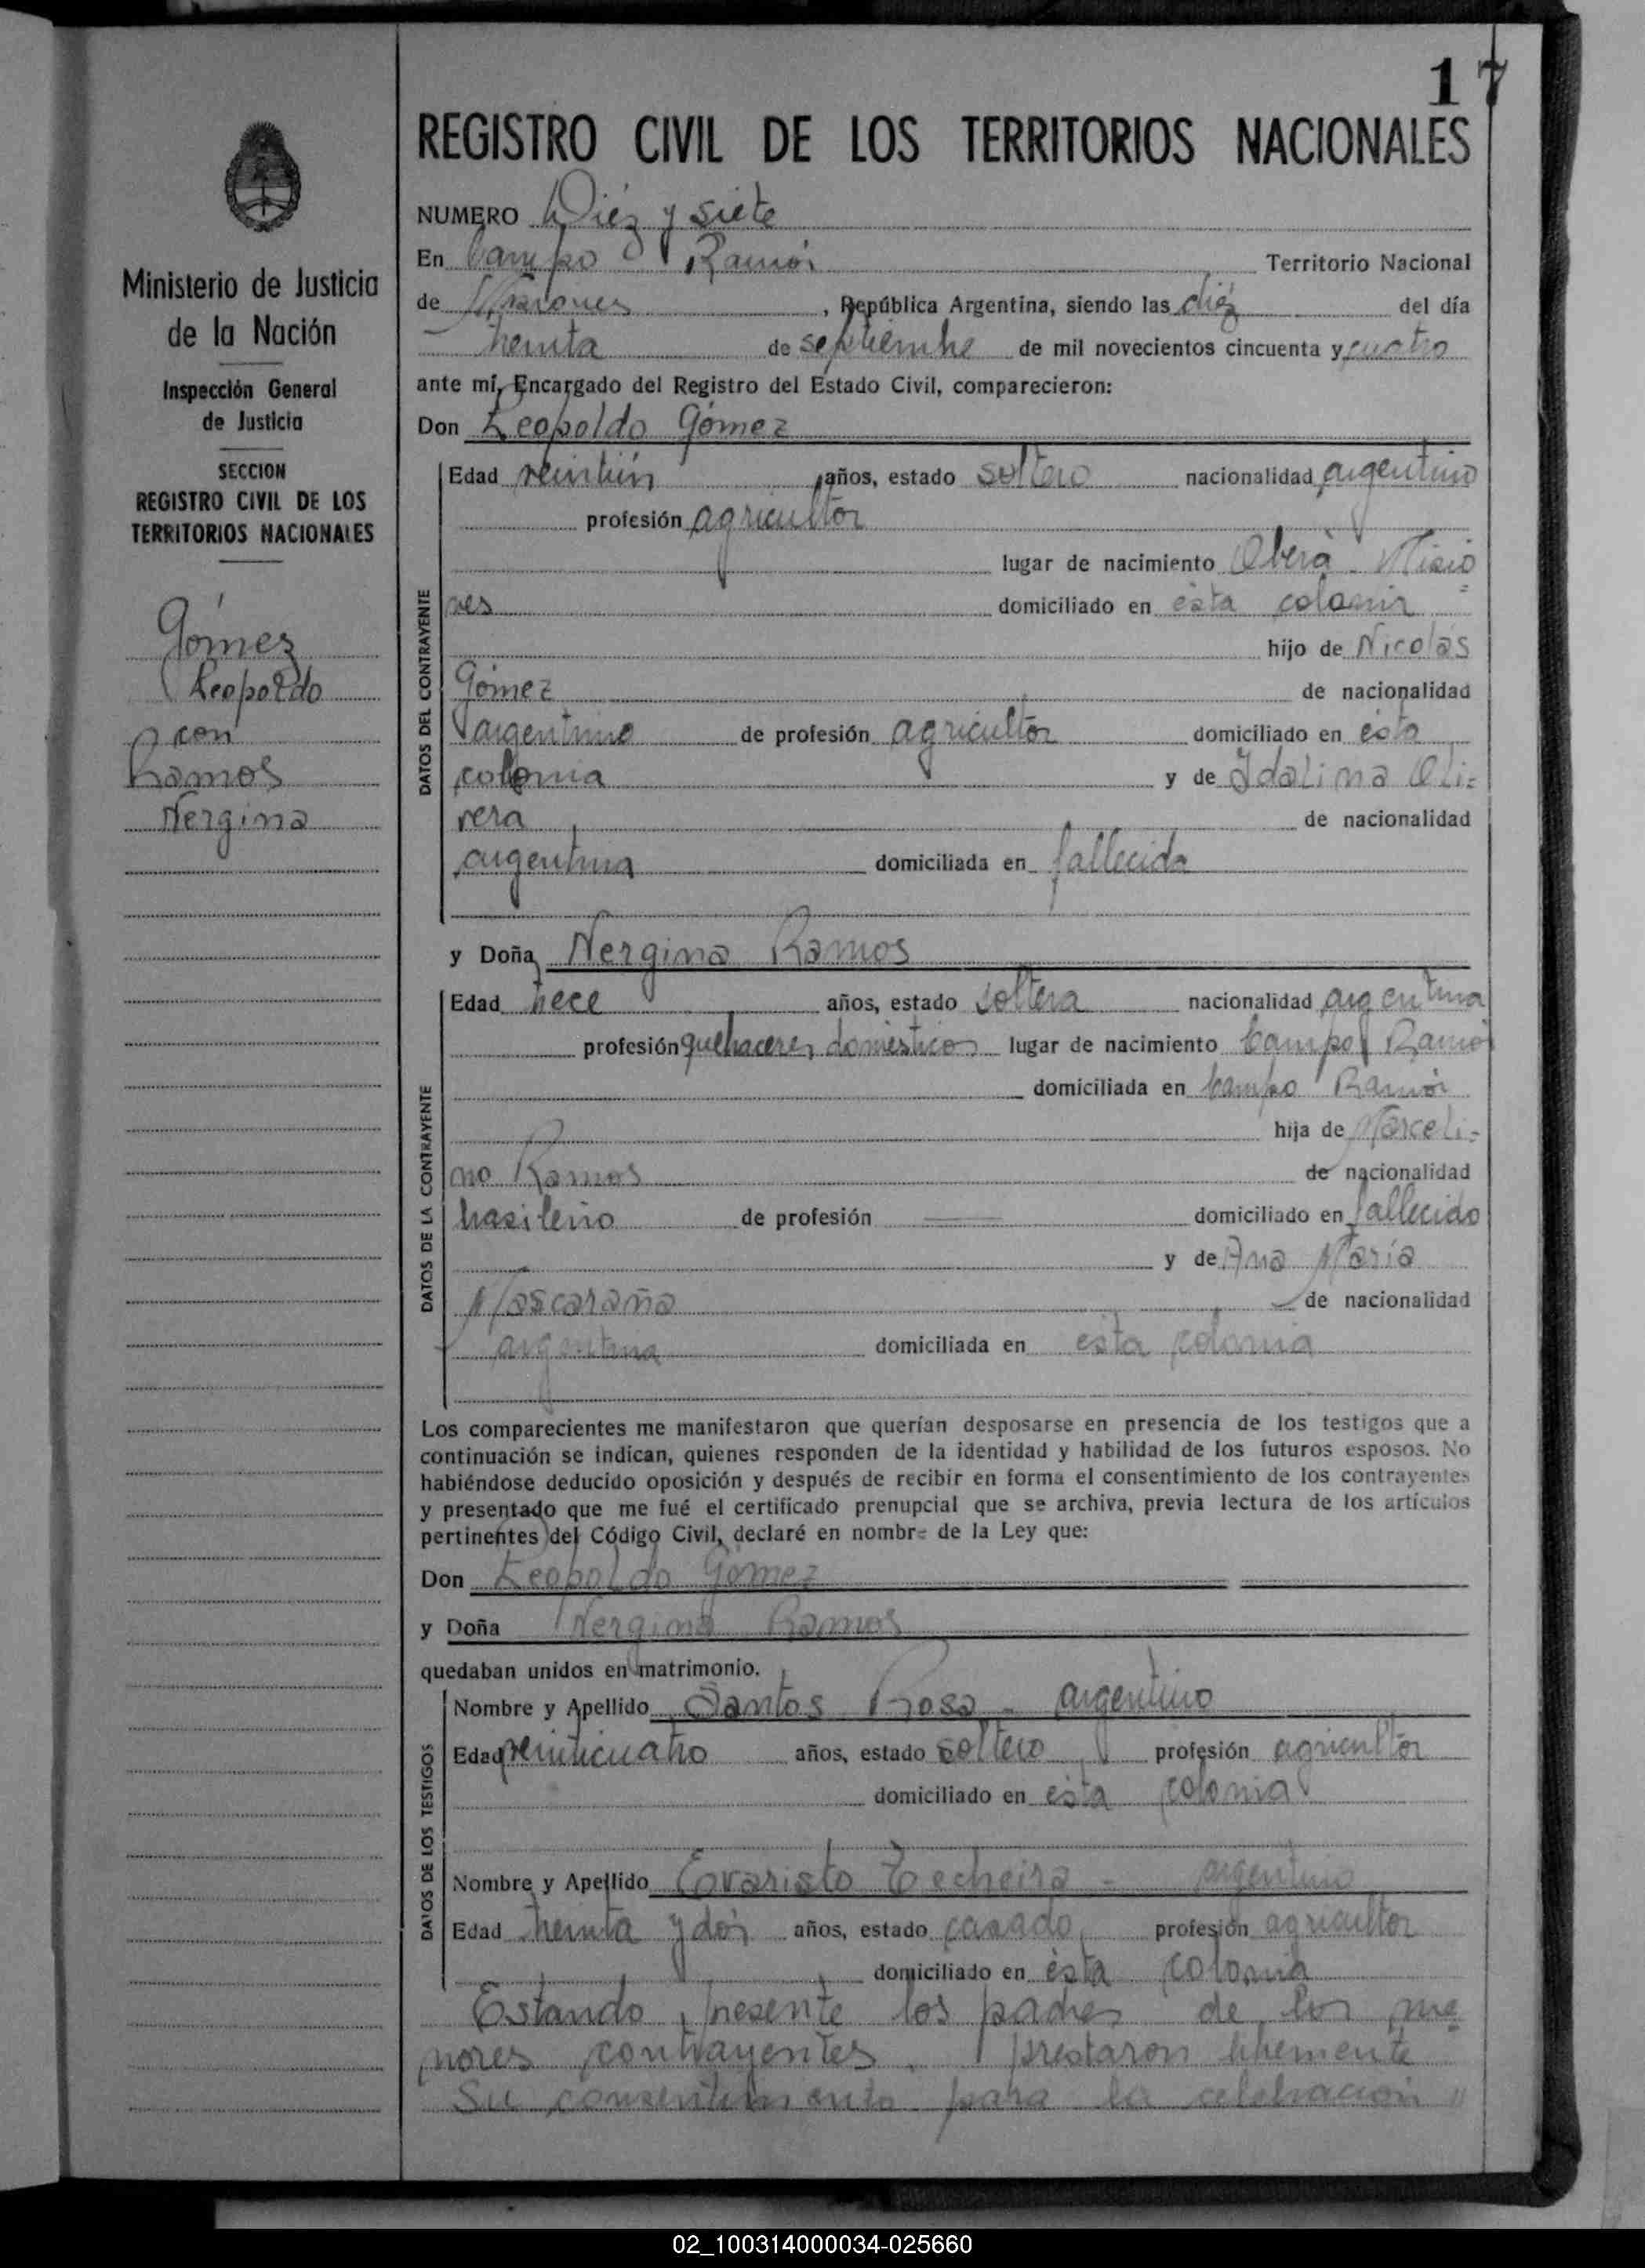 17
REGISTRO CIVIL DE LOS TERRITORIOS NACIONALES
Ministerio de Justicia
de la Nación
Inspección General
de Justicia
SECCION
REGISTRO CIVIL DE LOS
TERRITORIOS NACIONALES
Gómez
Leopoldo
con
Ramos
Nergina
NUMERO Diéz y siete
En Campo Ramón Territorio Nacional
de Misiones, República Argentina, siendo las diéz del día
treinta de septiembre de mil novecientos cincuenta y cuatro
ante mí, Encargado del Registro del Estado Civil, comparecieron:
Don Leopoldo Gómez
DATOS DEL CONTRAYENTE
Edad veintiún años, estado soltero nacionalidad argentino
profesión agricultor
lugar de nacimiento Oberá Misio
nes domiciliado en esta colonia
hijo de Nicolás
Gómez de nacionalidad
argentino de profesión agricultor domiciliado en esta
colonia y de Idalina Oli=
vera de nacionalidad
argentina domiciliada en fallecida
y Doña Nergina Ramos
DATOS DE LA CONTRAYENTE
Edad trece años, estado soltera nacionalidad argentina
profesión quehaceres domésticos lugar de nacimiento Campo Ramón
domiciliada en Campo Ramón
hija de Marceli=
no Ramos de nacionalidad
brasileño de profesión — domiciliado en fallecido
y de Ana María
Mascaraña de nacionalidad
argentina domiciliada en esta colonia
Los comparecientes me manifestaron que querían desposarse en presencia de los testigos que a
continuación se indican, quienes responden de la identidad y habilidad de los futuros esposos. No
habiéndose deducido oposición y después de recibir en forma el consentimiento de los contrayentes
y presentado que me fué el certificado prenupcial que se archiva, previa lectura de los artículos
pertinentes del Código Civil, declaré en nombre de la Ley que:
Don Leopoldo Gómez
y Doña Nergina Ramos
quedaban unidos en matrimonio.
DATOS DE LOS TESTIGOS
Nombre y Apellido Santos Rosa - argentino
Edad veinticuatro años, estado soltero profesión agricultor
domiciliado en esta colonia
Nombre y Apellido Evaristo Techeira - argentino
Edad treinta y dos años, estado casado profesión agricultor
domiciliado en esta colonia
Estando presente los padres de los me
nores contrayentes, prestaron libremente
su consentimiento para la celebración "
02_100314000034-025660